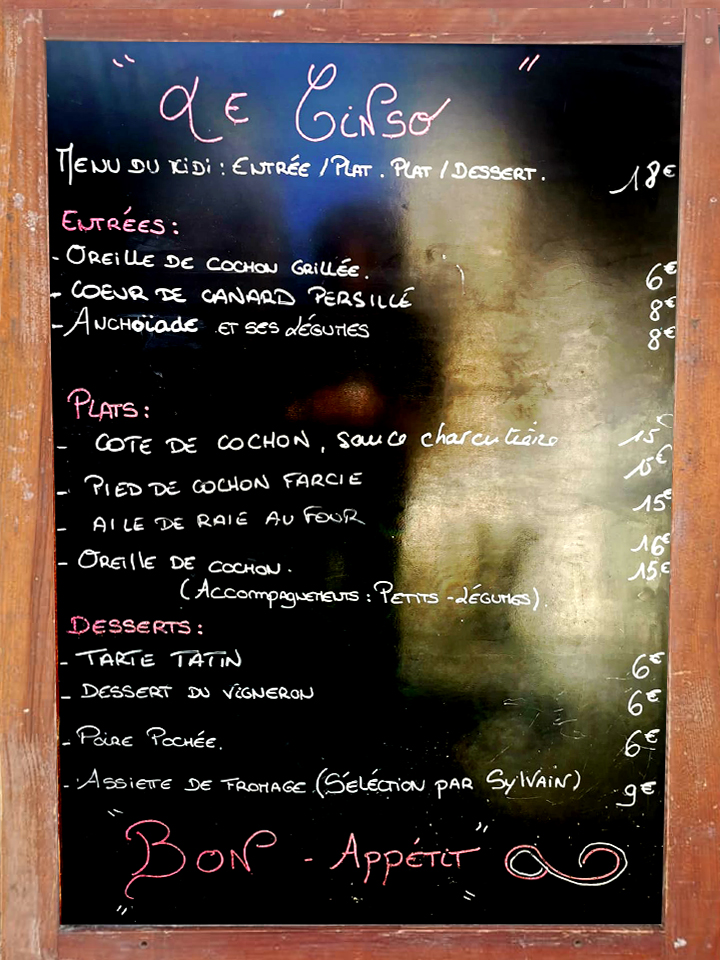 " LE CiNSO "
MENU DU MiDi : ENTRÉE / PLAT . PLAT / DESSERT . 18€
ENTRÉES :
- OREILLE DE COCHON GRILLÉE. 6€
- COEUR DE CANARD PERSILLÉ 8€
- ANCHOÏADE ET SES LÉGUMES 8€
PLATS :
- COTE DE COCHON, sauce charcutière 15€
- PIED DE COCHON FARCIE 15€
- AILE DE RAIE AU FOUR 15€
16€
- OREILLE DE COCHON. 15€
(ACCOMPAGNEMENTS : PETITS - LÉGUMES).
DESSERTS :
- TARTE TATIN 6€
- DESSERT DU VIGNERON 6€
- POIRE POCHÉE. 6€
- ASSIETE DE FROMAGE (SÉLÉCTION PAR SYLVAIN) 9€
" BON - APPÉTIT "